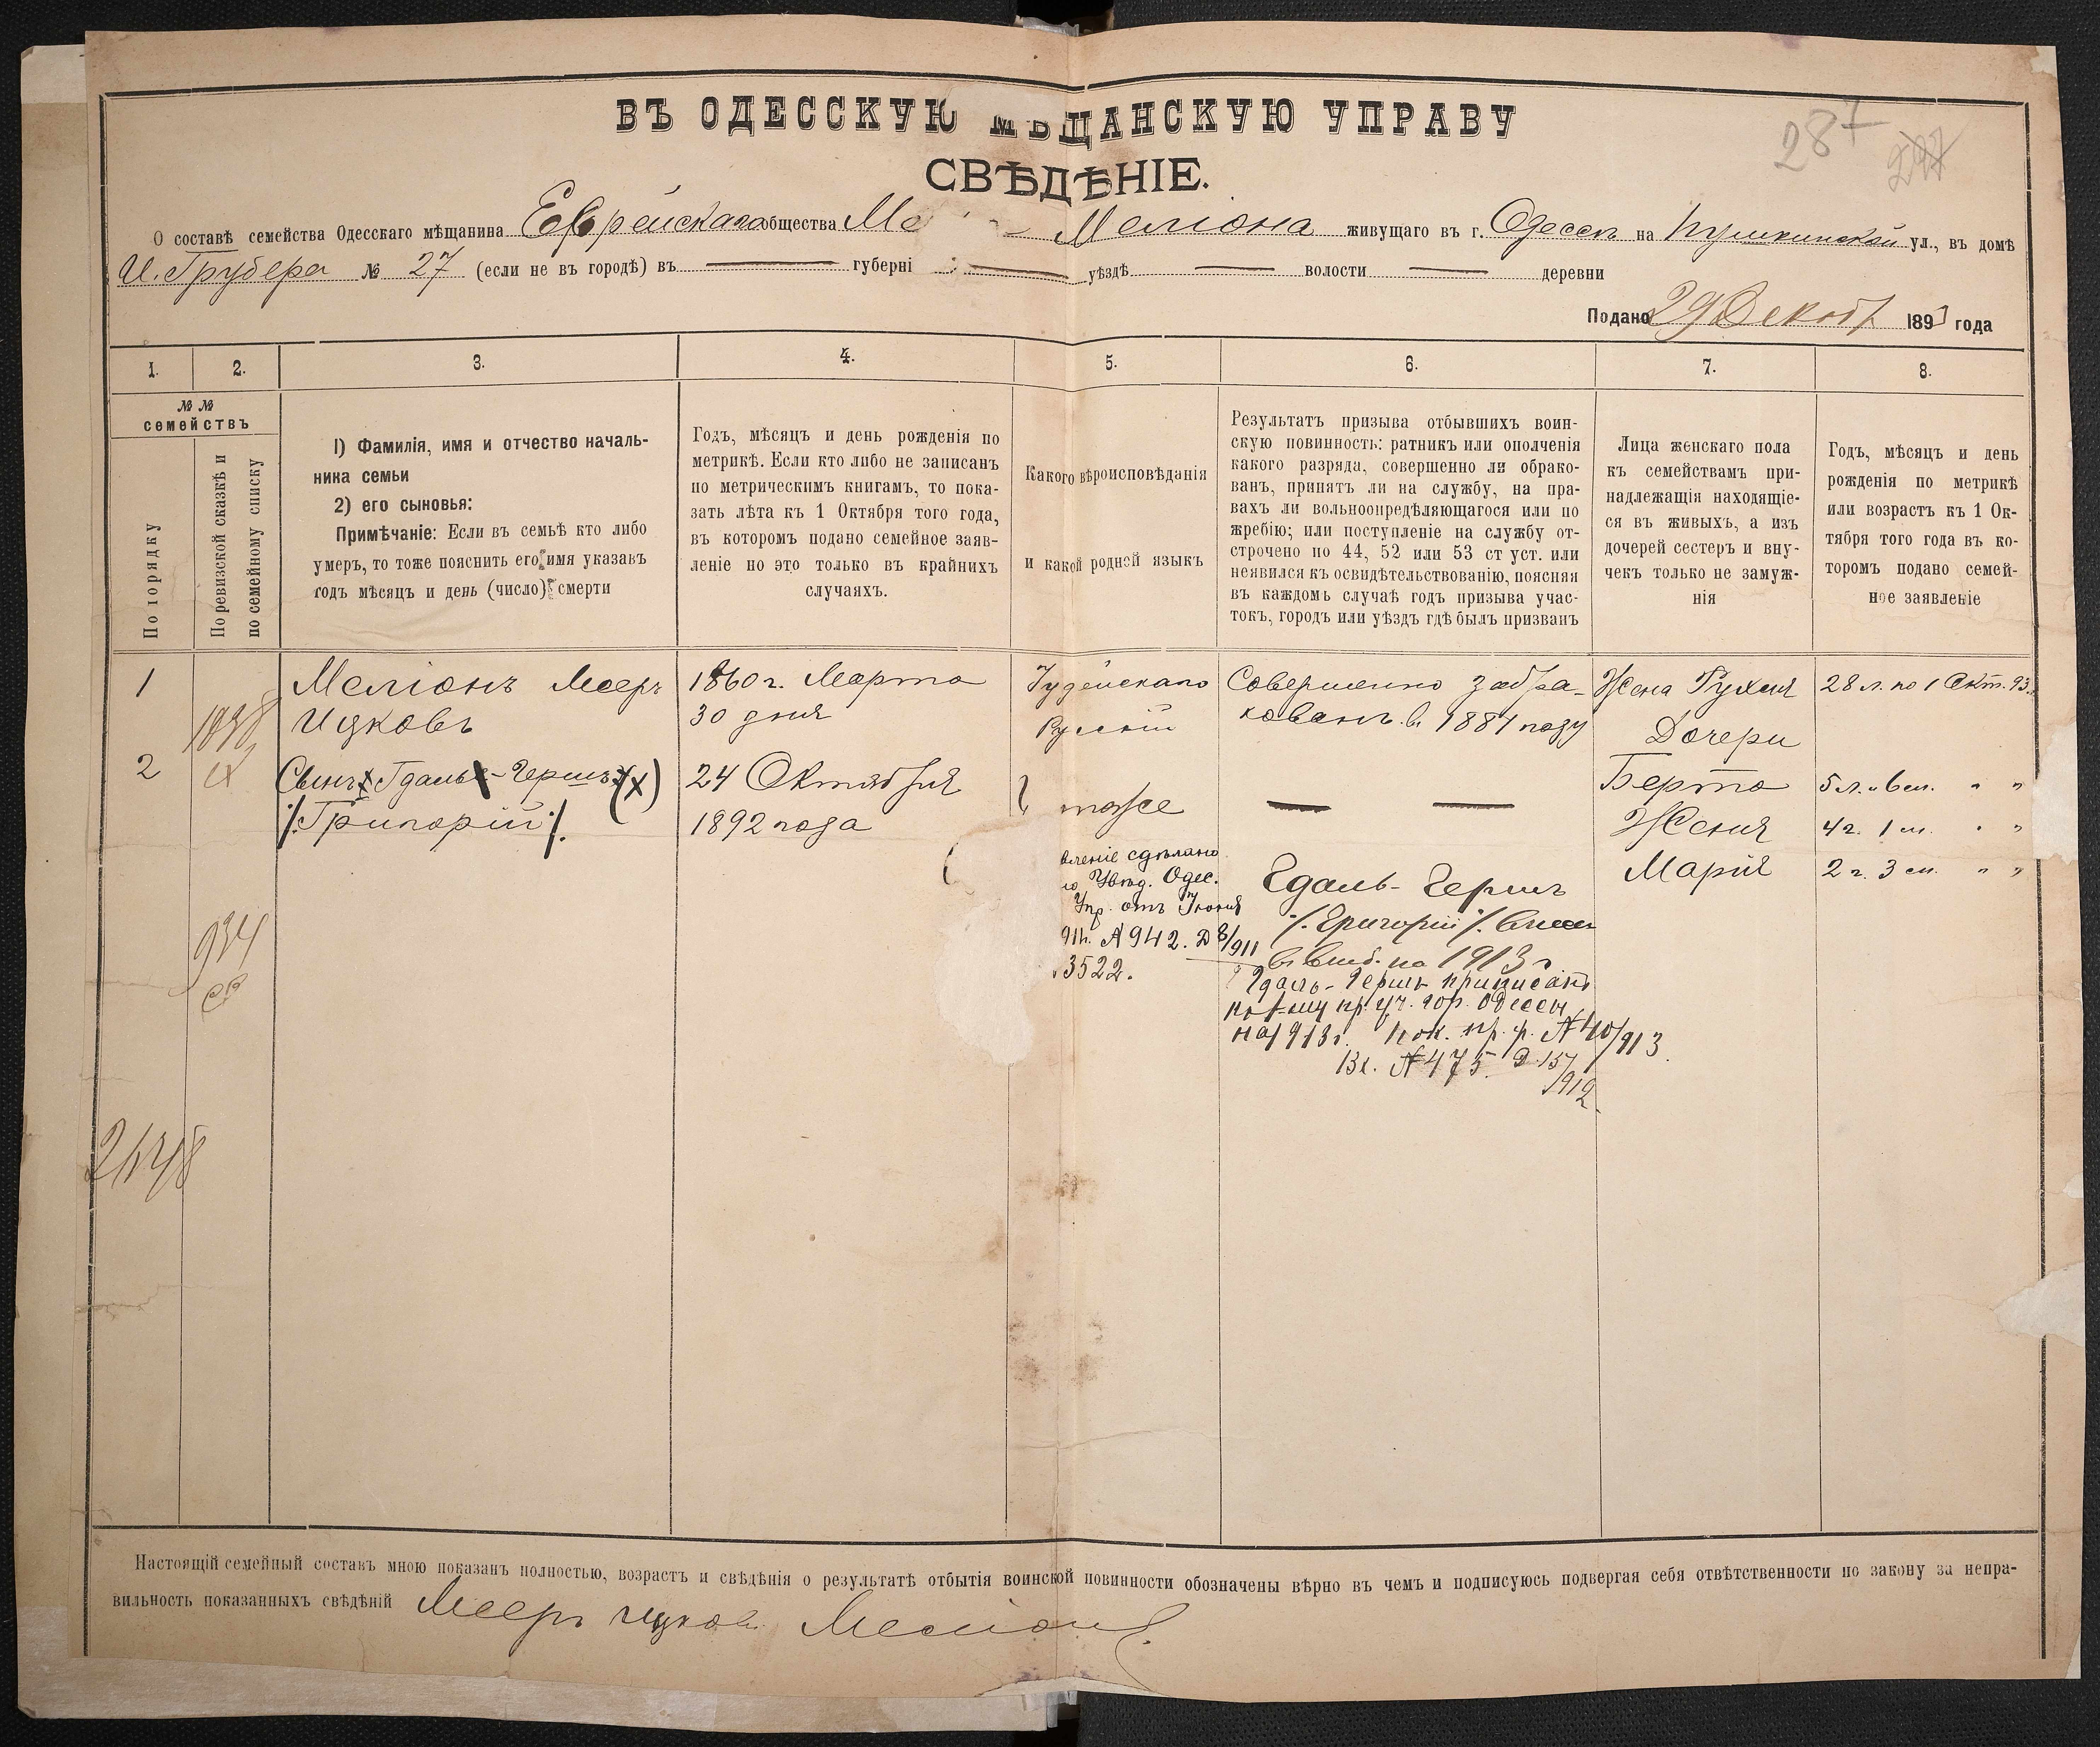 ВЪ ОДЕССКУЮ МѢЩАНСКУЮ УПРАВУ
287
СВѢДѢНІЕ.
О составѣ семейства Одесскаго мѣщанина Еврейскаго общества Меліона живущаго въ г. Одессѣ на Пушкинской ул., въ домѣ
И. Грубера № 27 (если не въ городѣ) въ губерні уѣздѣ волости деревни
Подано 29 Декабр 1893 года
1. 2. 3. 4. 5. 6. 7. 8.
№ №
семействъ
По порядку
По ревизской сказкѣ и
по семейному списку
1) Фамилія, имя и отчество началь-
ника семьи
2) его сыновья:
Примѣчаніе: Если въ семьѣ кто либо
умеръ, то тоже пояснить его имя указавъ
годъ мѣсяцъ и день (число) смерти
Годъ, мѣсяцъ и день рожденія по
метрикѣ. Если кто либо не записанъ
по метрическимъ книгамъ, то пока-
зать лѣта къ 1 Октября того года,
въ которомъ подано семейное заяв-
леніе но это только въ крайнихъ
случаяхъ.
Какого вѣроисповѣданія
и какой родной языкъ
Результатъ призыва отбывшихъ воин-
скую повинность: ратникъ или ополченія
какого разряда, совершенно ли обрако-
ванъ, принятъ ли на службу, на пра-
вахъ ли вольноопредѣляющагося или по
жребію; или поступленіе на службу от-
строчено по 44, 52 или 53 ст уст. или
неявился къ освидѣтельствованію, поясняя
въ каждомь случаѣ годъ призыва учас-
токъ, городъ или уѣздъ гдѣ былъ призванъ
Лица женскаго пола
къ семействамъ при-
надлежащія находящіе-
ся въ живыхъ, а изъ
дочерей сестеръ и вну-
чекъ только не замуж-
нія
Годъ, мѣсяцъ и день
рожденія по метрикѣ
или возрастъ къ 1 Ок-
тября того года въ ко-
торомъ подано семей-
ное заявленіе
1
Меліонъ Мееръ
Ицковъ
1860 г. Марта
30 дня
Іудейскаго
Рускій
Совершенно забра-
кованъ в 1881 году
Жена Рухля
28 л. по 1 Окт. 93
Дочери
2
Сынъ Гдаль-Гершъ (х)
/.Григорій./.
24 Октября
1892 года
тоже
Берта
5 л. 6 м. " "
Женя
4 г. 1 м. " "
Марія
2 г. 3 м. " "
вленіе сдѣлано
Увѣд. Одес.
Упр. отъ Іюня
911. № 942. Д 8/911
3522.
Гдаль-Гершъ
/.Григорій./.
на 1913 г
Гдаль-Гершъ приписанъ
пр. уч. гор. Одессы
на 1913 г. пр. №40/913
Вх. №475. Д. 157
1912
934
Настоящій семейный составъ мною показанъ полностью, возрастъ и свѣдѣнія о результатѣ отбытія воинской повинности обозначены вѣрно въ чемъ и подписуюсь подвергая себя отвѣтственности по закону за непра-
вильность показанныхъ свѣдѣній Мееръ Ицков Меліонъ